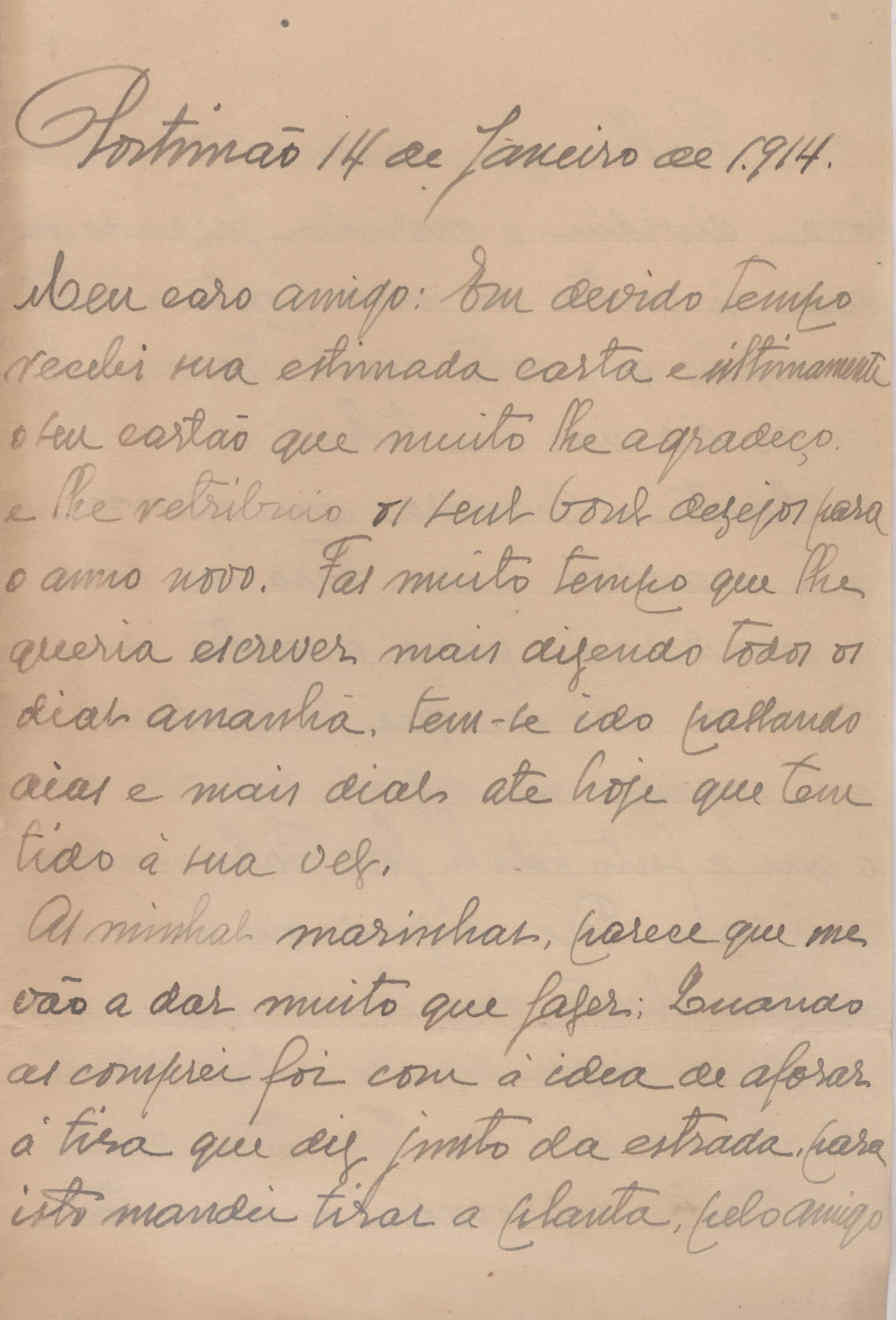 Portimão 14 de Janeiro de 1.914.
Meu caro amigo: Em devido tempo
recebi sua estimada carta e ultimamente
o seu cartão que muito lhe agradeço.
e lhe retribuio os seus bons dezejos para
o anno novo. Fas muito tempo que lhe
queria escrever mais dizendo todos os
dias amanhã, tem-se ido passando
dias e mais dias ate hoje que tem
tido à sua vez.
As minhas marinhas, parece que me
vão a dar muito que fazer; Quando
as comprei foi com à idea de aforar
à tira que diz junto da estrada, para
isto mandei tirar a planta, pelo amigo